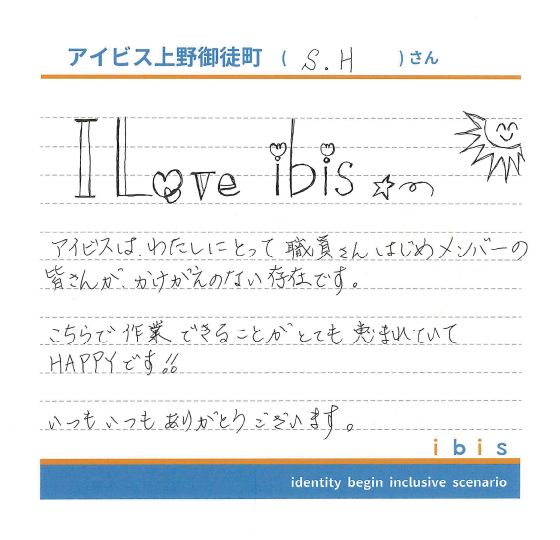 アイビス上野御徒町 ( S.H ) さん
I Love ibis
アイビスは、わたしにとって 職員さん はじめメンバーの
皆さんが、かけがえのない存在です。
こちらで 作業 できることが とても 恵まれていて
HAPPYです!!
いつも いつも ありがとう ございます。
ibis
identity begin inclusive scenario